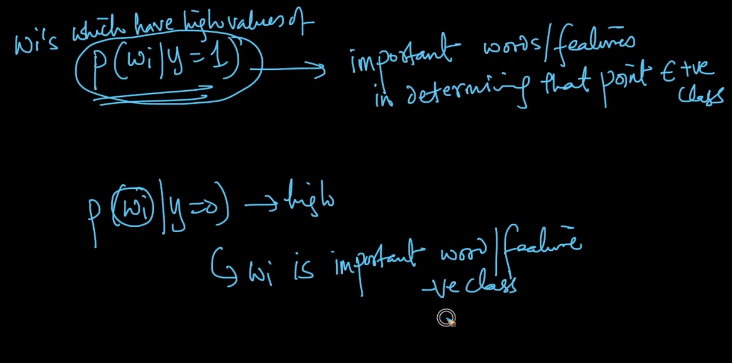 wi's which have high values of
P(wi|y=1) → important words/features
in determining that point ∈ +ve
class
P(wi|y=0) → high
↳ wi is important word/feature
-ve class